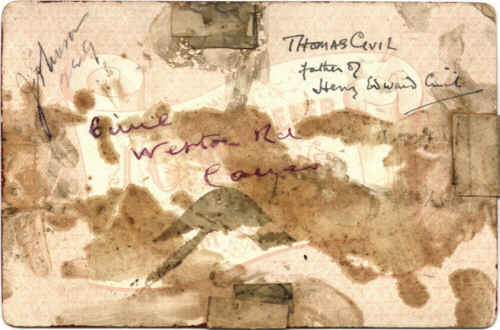 Johnson
THOMAS CIVIL
father of
Henry Edward Civil
Civil
Weston Rd
Cowes